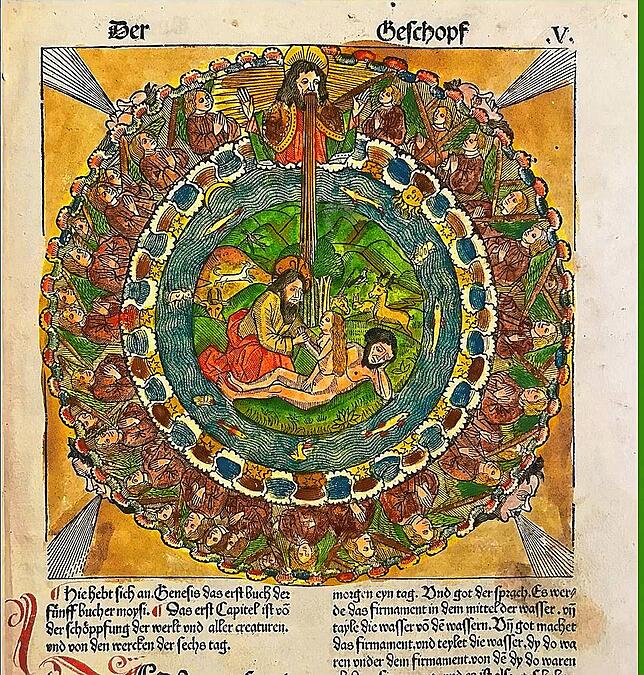 Der Geschopf .V.
¶ Hie hebt sich an. Genesis das erst buch der
fünff bucher moysi. ¶ Das erst Capitel ist vō
der schöppfung der werlt vnd aller creaturen.
vnd von den wercken der sechs tag.
morgen eyn tag. Vnd got der sprach. Es wer⸗
de das firmament in dem mittel der wasser. vñ
tayle die wasser vō dē wassern. Vñ got machet
das firmament. vnd teylet die wasser. dy do wa
ren vnder dem firmament. von dē dy do waren